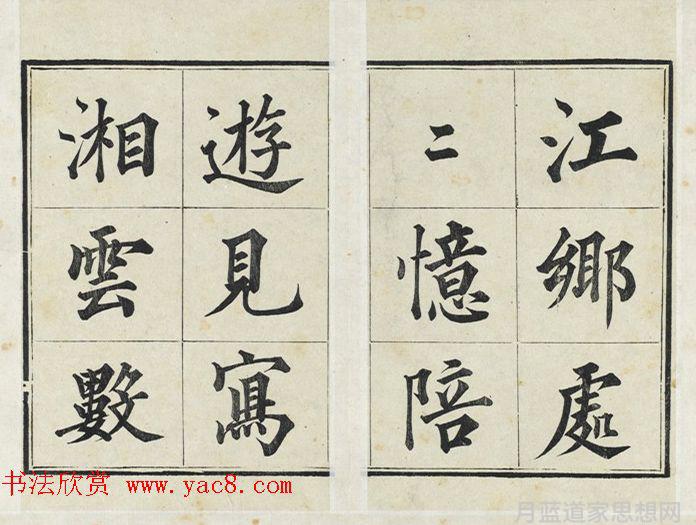 江鄉處
二憶陪
遊見寫
湘雲數
书法欣赏 www.yac8.com
月蓝道家思想网